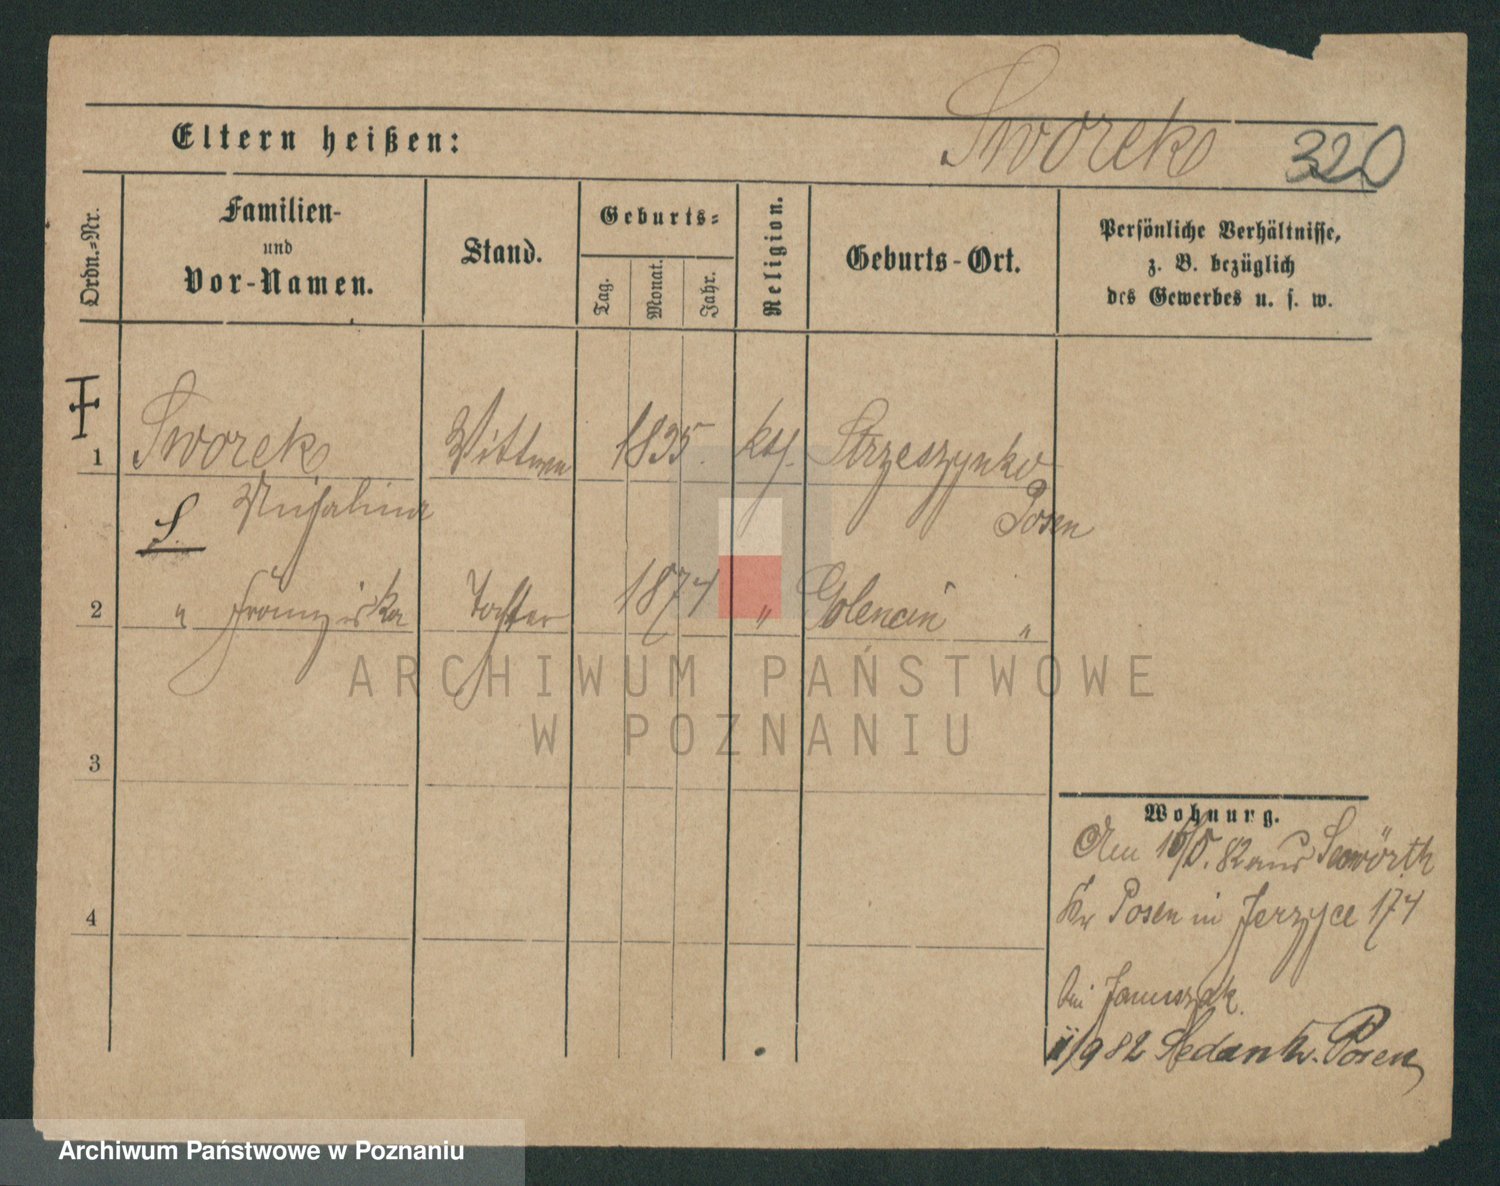 Sworek 320
Eltern heißen:
Ordn.-Nr.
Familien-
und
Vor-Namen.
Stand.
Geburts-
Tag.
Monat.
Jahr.
Religion.
Geburts-Ort.
Persönliche Verhältnisse,
z. B. bezüglich
des Gewerbes u. s. w.
1 Sworek Wittwe 1835. kth. Strzeszynko
Posen
2 " Franziska Tochter 1874 " Golencin "
3
4
Wohnung.
Am 82 aus Seewörth
Kr Posen in Jerzyce 174
bei Januszak.
/9 82 Posen
ARCHIWUM PAŃSTWOWE
W POZNANIU
Archiwum Państwowe w Poznaniu